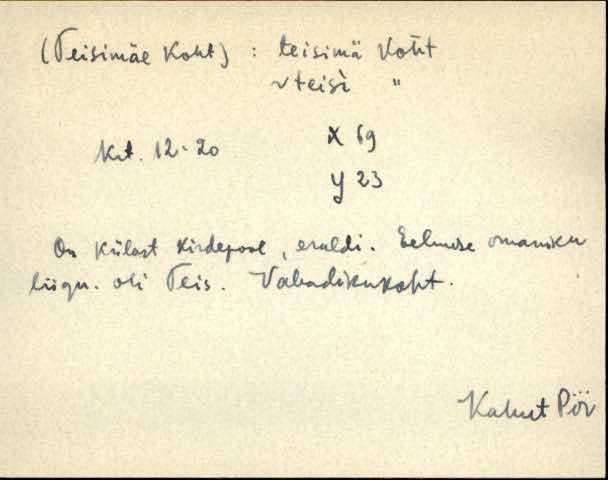 (Teisimäe koht) : teisimä koht
~ teisi "
Krt. 12-20
X 69
y 23
On külast kirdepool, eraldi. Eelmise omaniku
liign. oli Teis. Vabadikukoht.
Kahut Pöi